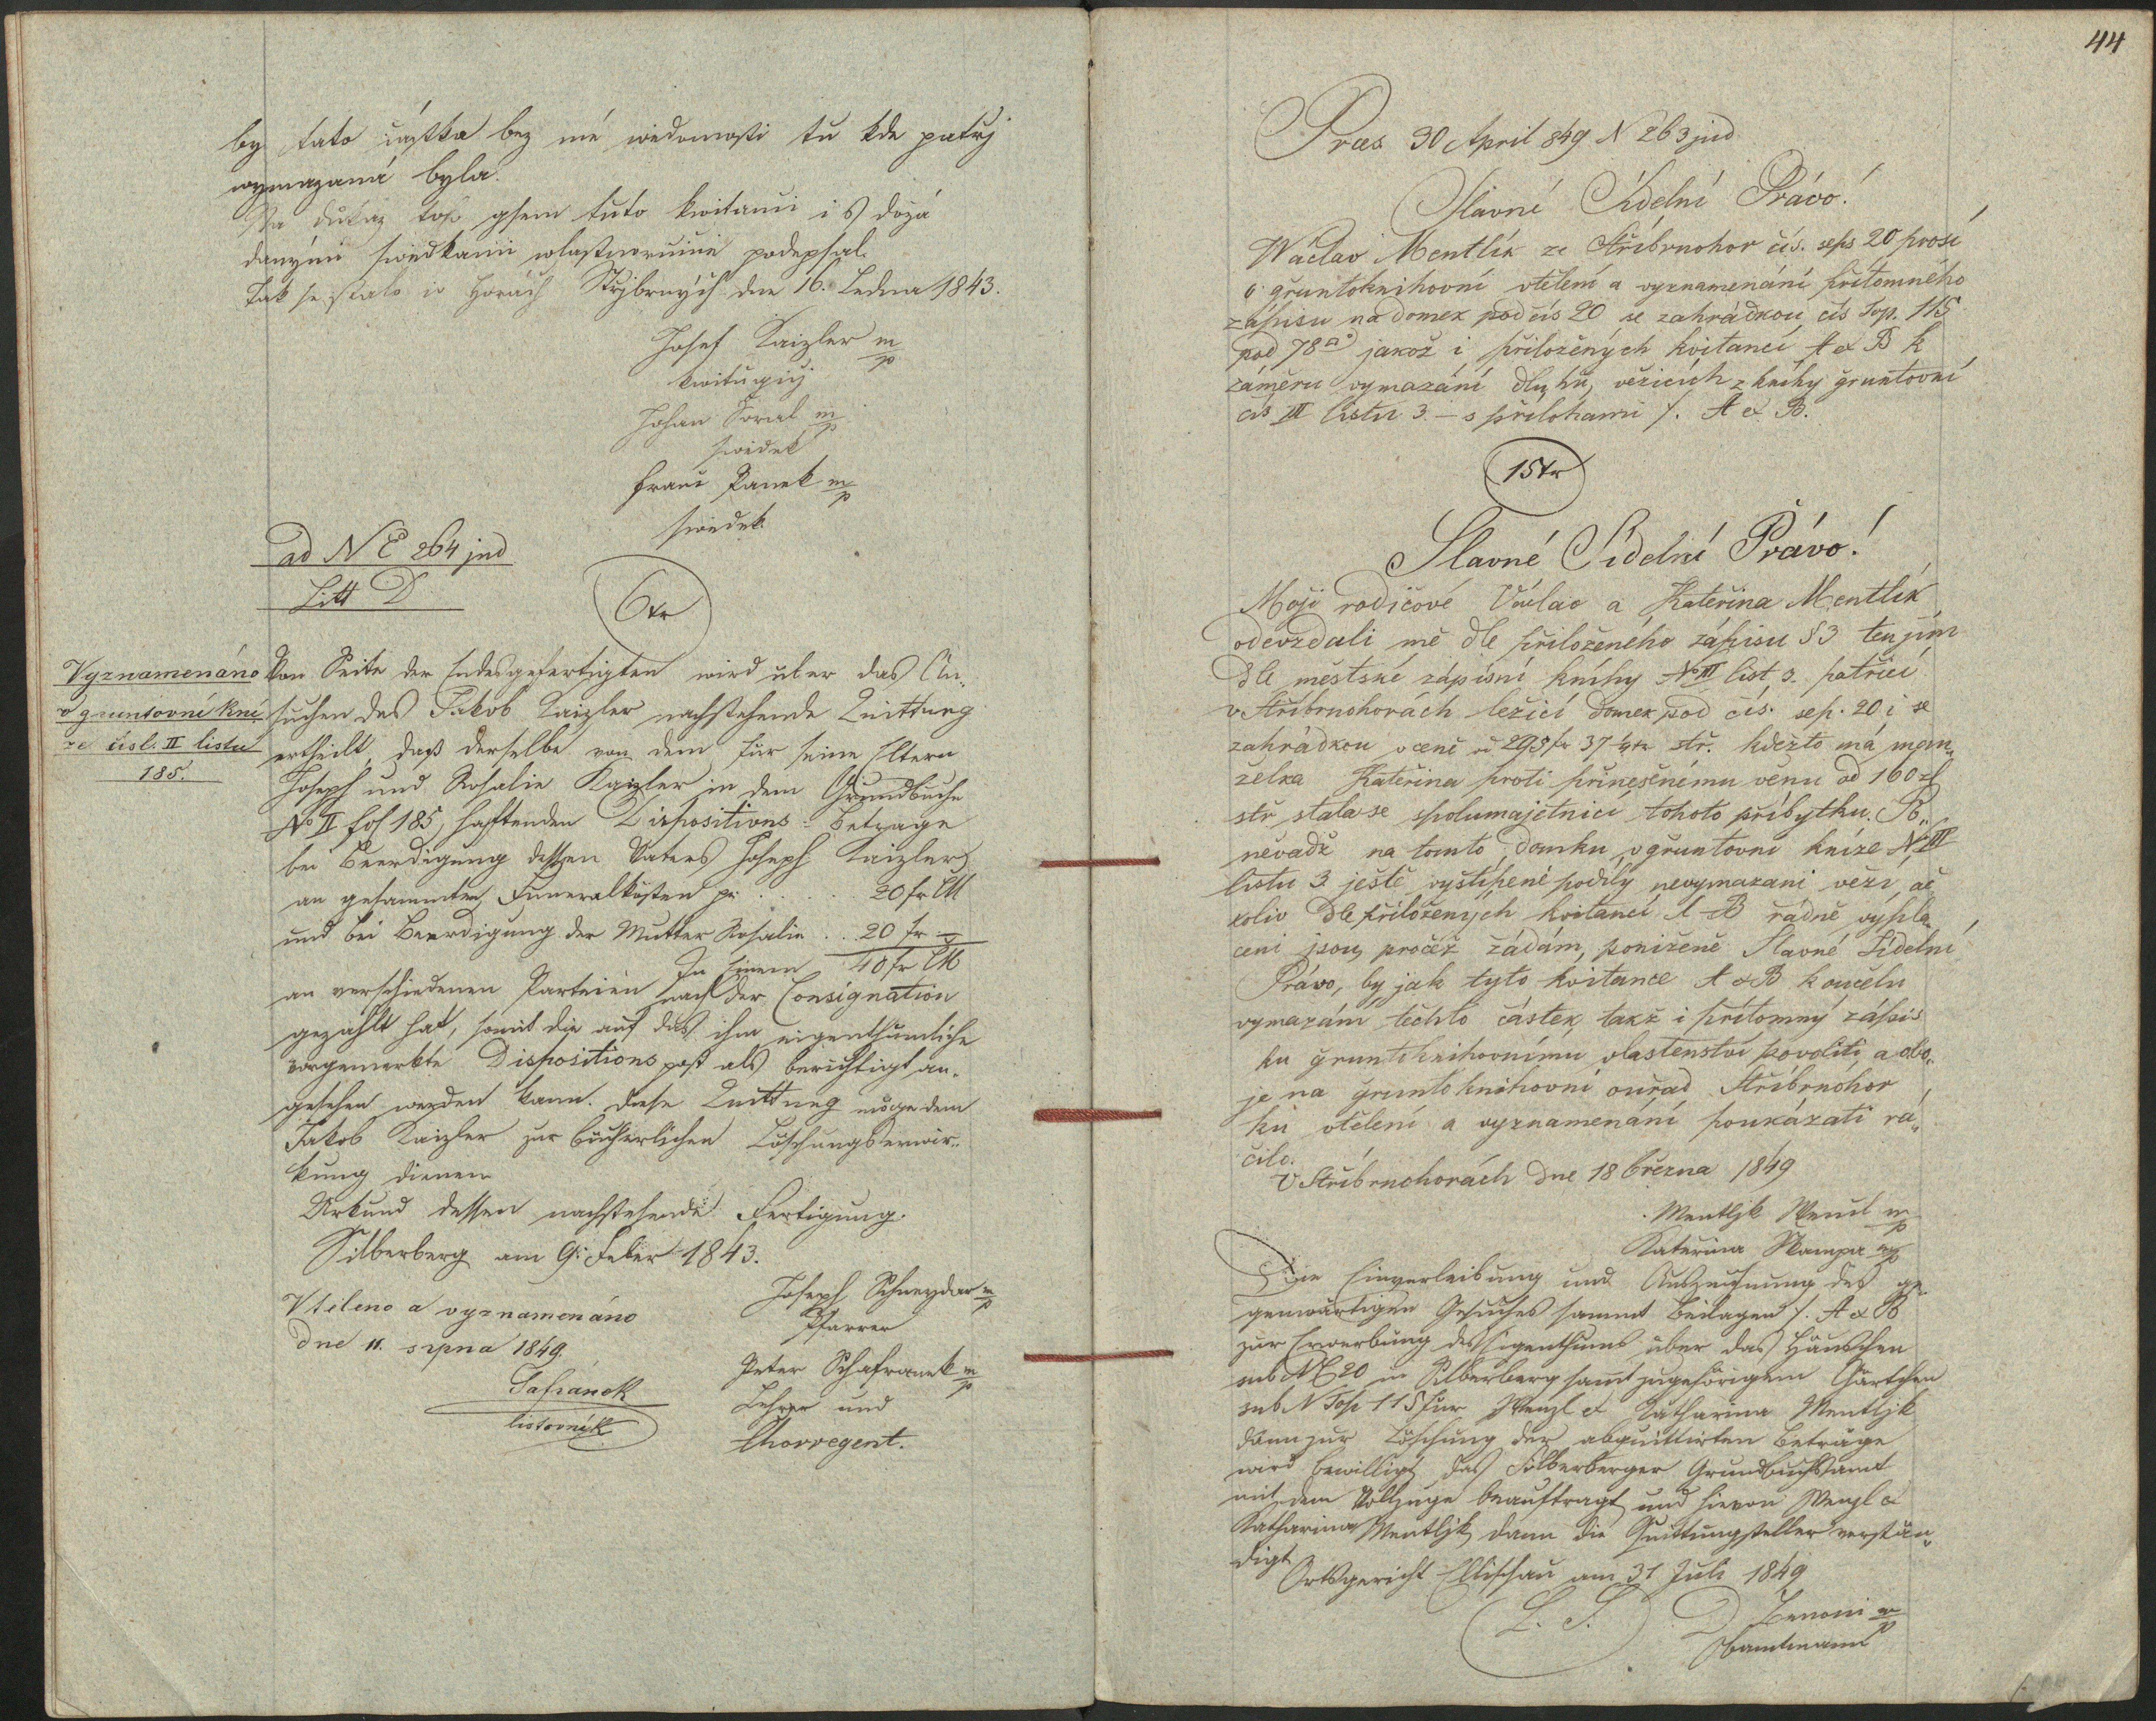 by tato částka bez mé wědomosti tu kde patřj
wymazaná byla.
Na důkaz toho gsem tuto kwitanci i s dožá
danými swědkami wlastnoručně podepsal.
Tak se stalo w Horách Střjbrných dne 16. Ledna 1843.
Josef Kaizler m/p
kwitugicý
Johan Koral m/p
swědek
Franc Panek m/p
swědek.
ad N E 264 jud
Litt D
6 kr
Vyznamenáno
v gruntovní kni
ze čisl. II listu
185.
Von Seite der Endesgefertigten wird über das An-
suchen des Jakob Kaizler nachstehende Quittung
ertheilt, daß derselbe von dem für seine Eltern
Joseph und Rosalie Kaizler in dem Grundbuche
No II fol 185, haftenden Dispositions-Betrage
bei Beerdigung dessen Vaters Joseph Kaizler
an gesammten Funeralkösten pr . . . . . 20 fr CM
und bei Beerdigung der Mutter Rosalie . . 20 fr –
In Einem 40 fr CM
an verschiedenen Parteien nach der Consignation
gezahlt hat, somit die auf das ihm eigenthümliche
vorgemerkte Dispositionspost als berichtigt an-
gesehen werden kann. Diese Quittung möge dem
Jakob Kaizler zur bücherlichen Löschungserwir-
kung dienen
Urkund dessen nachstehende Fertigung.
Silberberg am 9: Feber 1843.
Joseph Schneyder m/p
Pfarrer
Vtěleno a vyznamenáno
dne 11. srpna 1849.
Peter Schafranek m/p
Lehrer und
Chorregent.
Šafránek
listovník
44
Præs 30 April 849 N 263 jud
Slavné Sídelní Právo!
Wáclav Mentlík ze Stříbrnohor čís. seps 20 prosí
o gruntoknihovní vtělení a vyznamenání přítomného
zápisu na domek pod čís 20 se zahrádkou čís Top. 115
pod 78 □° jakož i přiložených kvitancí A & B k
záměru vymazání dluhu, vězících z knihy gruntovní
čís III listu 3. – s přílohami /. A & B.
15 kr
Slavné Sídelní Právo!
Moji rodičové Václav a Kateřina Mentlík
odevzdali mě dle přiloženého zápisu §3 ten jim
dle městské zápisní knihy No III list, 3. patřící
v Stříbrnohorách ležící domek pod čís. sep. 20 i se
zahrádkou v ceně od 295 fr 37 ¼ kr stř. kdežto má man„
želka Kateřina proti přinešenému věnu od 160 zl
stř stala se spolumajetnicí tohoto příbytku. Po„
něvadž na tomto domku, v gruntovní knize No III
listu 3 ještě vyštípené podíly nevymazani vězí, ač
koliv dle přiložených kvitancí A – B řádně vypla
ceni jsou, pročež žádám, poníženě Slavné Sídelní
Právo, by jak tyto kvitance A & B k oučelu
vymazání těchto částek, takž i přítomný zápis
ku gruntoknihovnímu vlastenství povoliti, a obo„
je na gruntoknihovní ouřad Stříbrnohor
ku vtělení a vyznamenání poukázati rá„
čilo.
V Stříbrnohorách dne 18 března 1849
Mentljk Wencl m/p
Kateřina Skampa m/p
Die Einverleibung und Auszeichnung des ge-
genwärtigen Gesuches sammt Beilagen /. A & B
zur Erwerbung des Eigenthums über das Häuschen
sub N E 20 in Silberberg sammt zugehörigem Gärtchen
sub N Top 115 für Wenzl & Katharina Mentljk
dann zur Löschung der abquittirten Beträge
wird bewilligt das Silberberger Grundbuchsamt
mit dem Vollzuge beauftragt und hievon Wenzl &
Katharina Mentljk, dann die Quittungsteller verstän„
digt
Ortsgericht Ellischau am 31 Juli 1849
L. S.
m/p
Obamtmann